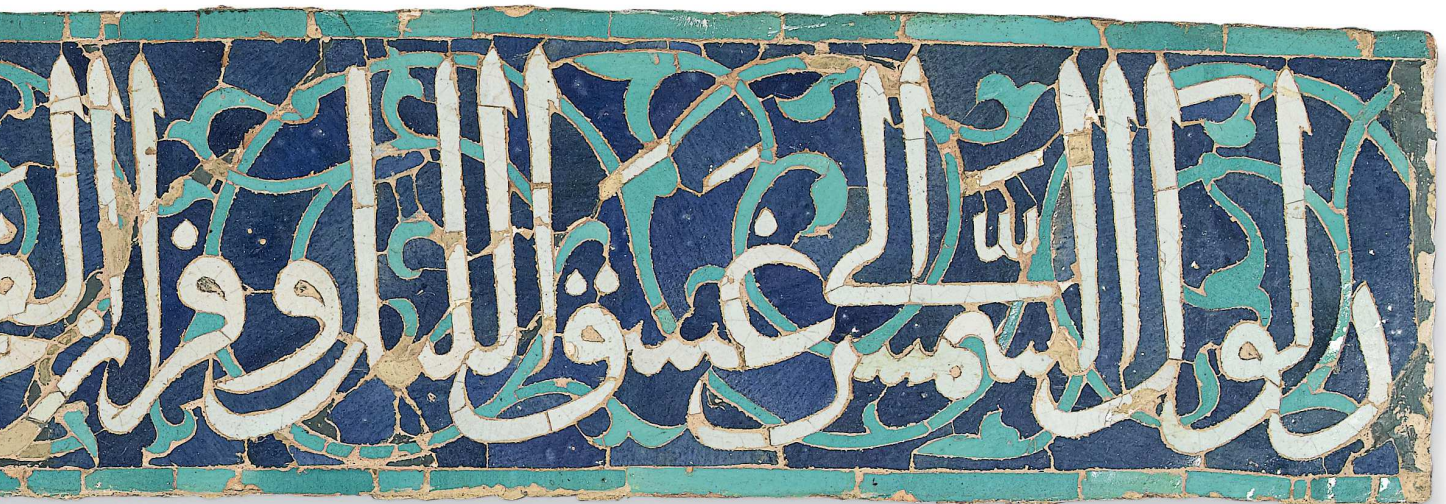 لدلوك الشمس الى غسق الليل وقران الفجر